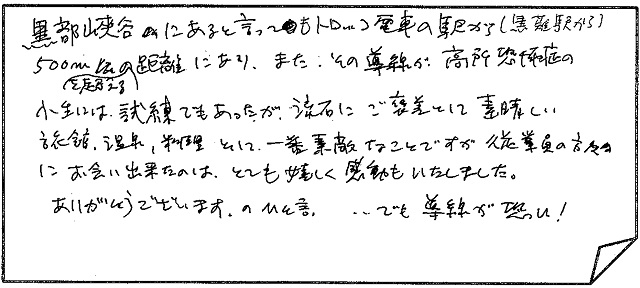 黒部峡谷にあると言ってもトロッコ電車の駅から(黒薙駅から)
500m 位の距離にあり、また、その導線が高所恐怖症の
小生には、試練でもあったが、流石にご褒美として素晴しい
旅館、温泉、料理 そして、一番素敵なことですが 従業員の方々
にお会い出来たのは、とても嬉しく感動もいたしました。
ありがとうございます。のひと言、…でも導線が恐い!